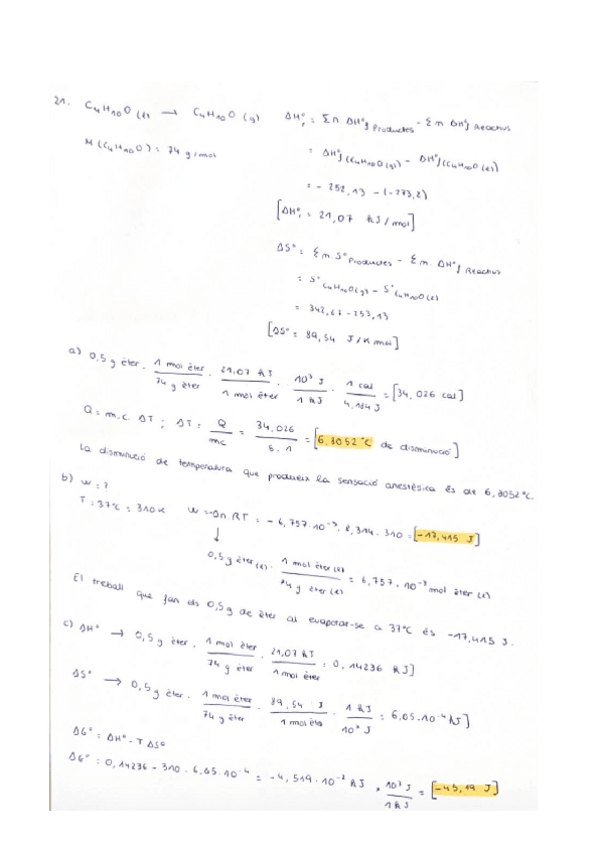 21. C4H10O (l) → C4H10O (g)
M (C4H10O) = 74 g/mol
ΔH°r = Σn. ΔH°f Productes - Σn ΔH°f Reactius
= ΔH°f (C4H10O(g)) - ΔH°f (C4H10O(l))
= - 252,13 - (-273,2)
[ΔH°r = 21,07 kJ/mol]
ΔS° = Σn. S° Productes - Σn. ΔH°f Reactius
= S° C4H10O(g) - S° C4H10O(l)
= 342,67 - 253,13
[ΔS° = 89,54 J/K mol]
a) 0,5 g èter. 1 mol èter / 74 g èter . 21,07 kJ / 1 mol èter . 10³ J / 1 kJ . 1 cal / 4,184 J = [34,026 cal]
Q = m.c. ΔT ; ΔT = Q / mc = 34,026 / 5.1 = [6,8052 °C de disminució]
La disminució de temperatura que produeix la sensació anestèsica és de 6,8052°C.
b) W = ?
T = 37°C = 310K W = -Δn.RT = - 6,757.10⁻³. 8,314. 310 = [-17,415 J]
↓
0,5 g èter (l). 1 mol èter (l) / 74 g èter (l) = 6,757.10⁻³ mol èter (l)
El treball que fan els 0,5 g de èter al evaporar-se a 37°C és -17,415 J.
c) ΔH° → 0,5 g èter. 1 mol èter / 74 g èter . 21,07 kJ / 1 mol èter = 0,14236 kJ]
ΔS° → 0,5 g èter. 1 mol èter / 74 g èter . 89,54 J / 1 mol èter . 1 kJ / 10³ J = 6,05.10⁻⁴ kJ]
ΔG° = ΔH° - T ΔS°
ΔG° = 0,14236 - 310 . 6,05.10⁻⁴ = -4,519.10⁻² kJ . 10³ J / 1 kJ = [-45,19 J]